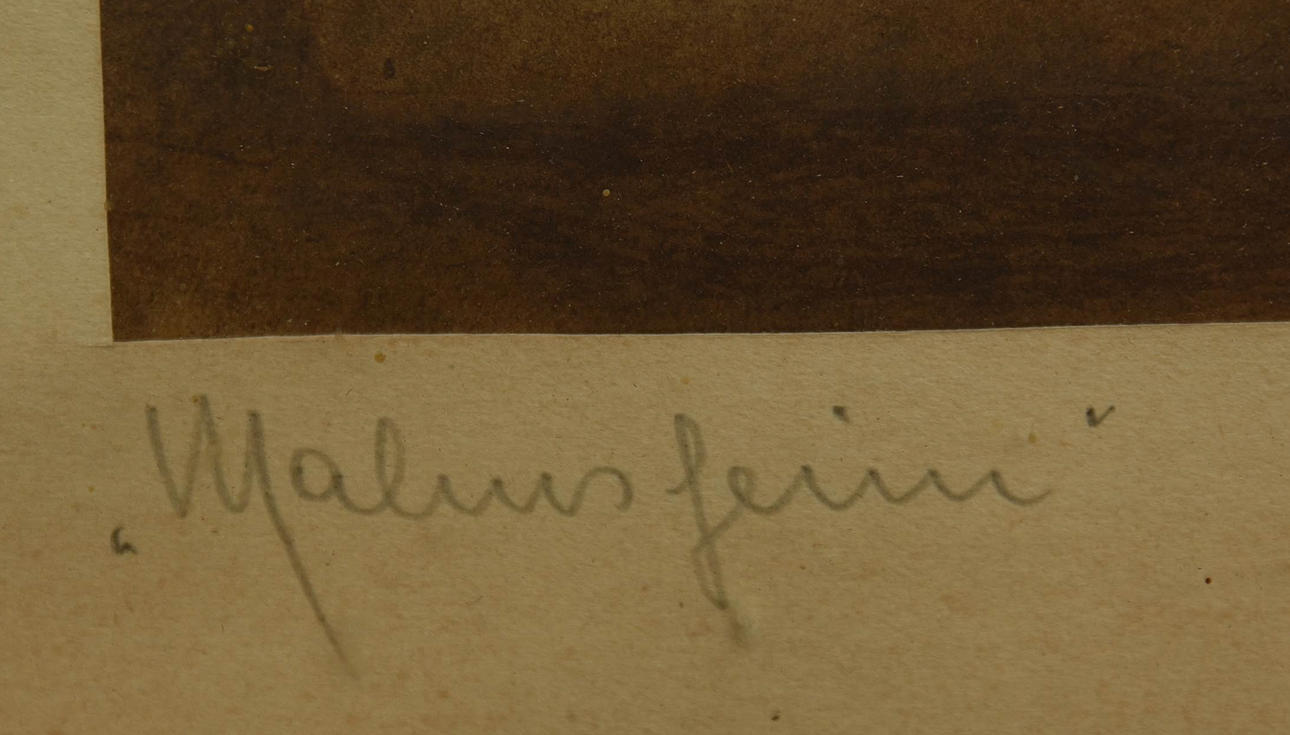 „Malmsheim"